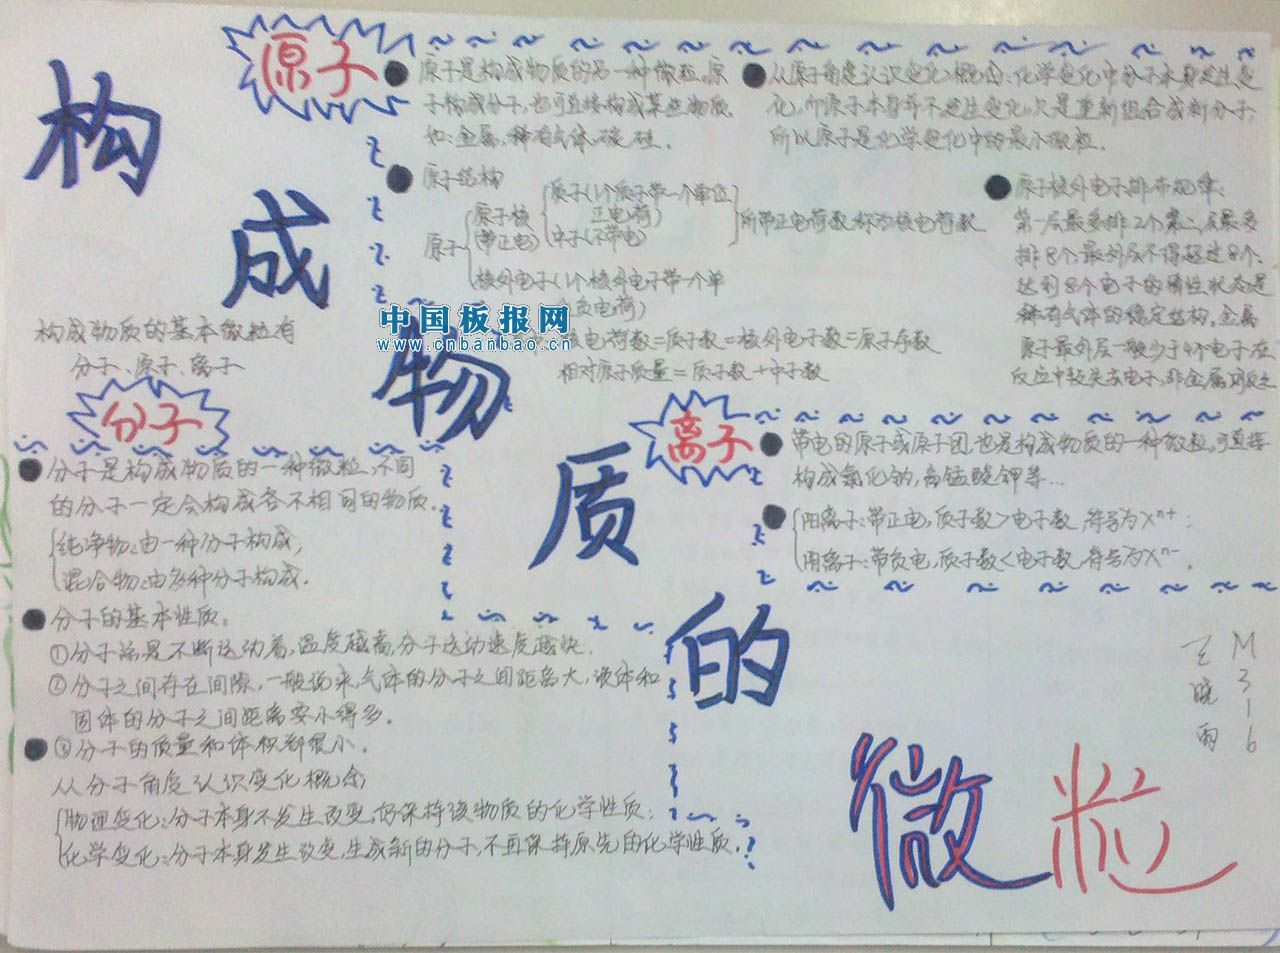 构成物质的微粒
构成物质的基本微粒有
分子、原子、离子
分子
分子是构成物质的一种微粒,不同
的分子一定会构成各不相同的物质.
纯净物:由一种分子构成,
混合物:由多种分子构成.
分子的基本性质:
①分子总是不断运动着,温度越高,分子运动速度越快.
②分子之间存在间隙,一般说来,气体的分子之间距离大,液体和
固体的分子之间距离要小得多.
③分子的质量和体积都很小.
从分子角度认识变化概念
物理变化:分子本身不发生改变,仍保持该物质的化学性质;
化学变化:分子本身发生改变,生成新的分子,不再保持原先的化学性质.
原子
原子是构成物质的另一种微粒,原
子构成分子,也可直接构成某些物质.
如:金属、稀有气体、碳、硅.
原子结构
原子
原子核
(带正电)
质子(1个质子带一个单位
正电荷)
中子(不带电)
所带正电荷数称为核电荷数
核外电子(1个核外电子带一个单
负电荷)
核电荷数=质子数=核外电子数=原子序数
相对原子质量=质子数+中子数
从原子角度认识变化概念:化学变化中分子本身发生变
化,而原子本身并不发生变化,只是重新组合成新分子,
所以原子是化学变化中的最小微粒.
原子核外电子排布规律:
第一层最多排2个,第二层最多
排8个,最外层不得超过8个.
达到8个电子的稀性状态是
稀有气体的稳定结构,金属
原子最外层一般少于4个电子,在
反应中较失去电子,非金属则反之
离子
带电的原子或原子团,也是构成物质的一种微粒,可直接
构成氯化钠,高锰酸钾等...
阳离子:带正电,质子数>电子数,符号为Xⁿ⁺;
阴离子:带负电,质子数<电子数,符号为Xⁿ⁻.
M316
晓雨
中国板报网
www.cnbanbao.cn